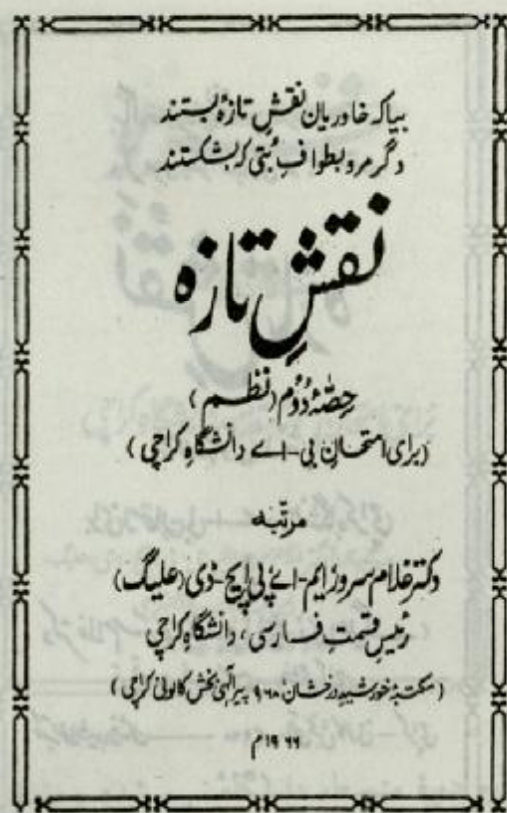 بیا کہ خاوریان نقشِ تازۂ بستند
دگر مرو بطوافِ بُتی کہ بشکستند
نقشِ تازه
حِصّۂ دُوُم (نظم)
(برای امتحانِ بی-اے دانشگاہِ کراچی)
مرتّبہ
دکتر غلام سرور ایم-اے پی ایچ-ڈی (علیگ)
رئیسِ قسمتِ فارسی، دانشگاہِ کراچی
(مکتبۂ خورشیدِ درخشان ۹۶۸ پیر الٰہی بخش کالونی کراچی)
۱۹۶۶م